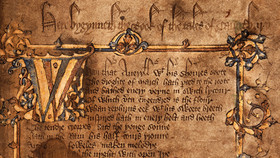 Here bygynneth the Book of the tales of Caunterbury
Whan that Aueryll wt his shoures soote
The droghte of march hath perced to the roote
And bathed euery veyne in swich lycour
Of which vertu engendred is the flour
wt his sweete breeth
Inspired hath in euery holt and heeth
The tendre croppes and the yonge sonne
Hath in the Ram his half cours yronne
foweles maken melodye
the nyght with open Iye